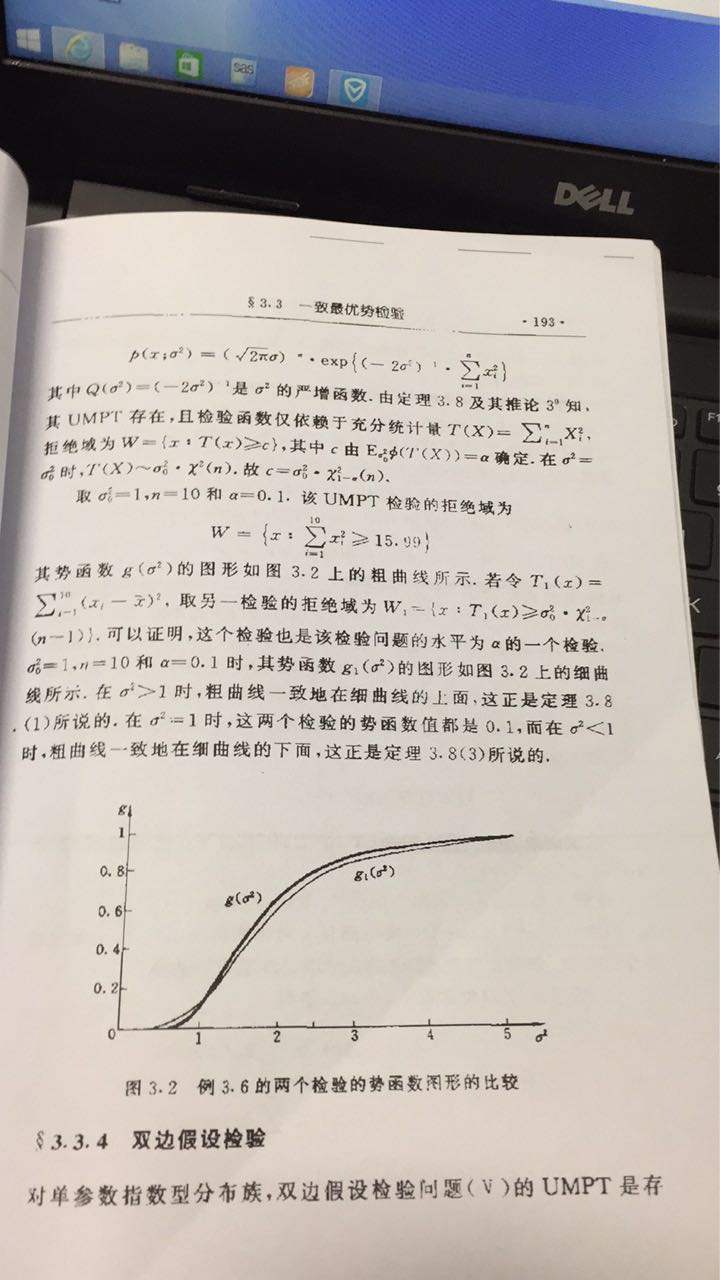 sas
DELL
§3.3 一致最优势检验
·193·
p(x;σ²)=(√2πσ)⁻ⁿ·exp{(−2σ²)⁻¹·∑ⁿᵢ₌₁xᵢ²}
其中Q(σ²)=(−2σ²)⁻¹是σ²的严增函数.由定理3.8及其推论3°知,
其UMPT存在,且检验函数仅依赖于充分统计量T(X)=∑ⁿᵢ₌₁Xᵢ²,
拒绝域为W={x:T(x)≥c},其中c由E_σ₀²ϕ(T(X))=α确定.在σ²=
σ₀²时,T(X)~σ₀²·χ²(n).故c=σ₀²·χ²₁₋α(n).
取σ₀²=1,n=10和α=0.1.该UMPT检验的拒绝域为
W={x:∑¹⁰ᵢ₌₁xᵢ²≥15.99}
其势函数g(σ²)的图形如图3.2上的粗曲线所示.若令T₁(x)=
∑¹⁰ᵢ₌₁(xᵢ−x̄)²,取另一检验的拒绝域为W₁={x:T₁(x)≥σ₀²·χ²₁₋α
(n−1)}.可以证明,这个检验也是该检验问题的水平为α的一个检验.
σ₀²=1,n=10和α=0.1时,其势函数g₁(σ²)的图形如图3.2上的细曲
线所示.在σ²>1时,粗曲线一致地在细曲线的上面,这正是定理3.8
(1)所说的.在σ²=1时,这两个检验的势函数值都是0.1,而在σ²<1
时,粗曲线一致地在细曲线的下面,这正是定理3.8(3)所说的.
g
1
0.8
0.6
0.4
0.2
g(σ²)
g₁(σ²)
0 1 2 3 4 5 σ²
图3.2 例3.6的两个检验的势函数图形的比较
§3.3.4 双边假设检验
对单参数指数型分布族,双边假设检验问题(Ⅴ)的UMPT是存